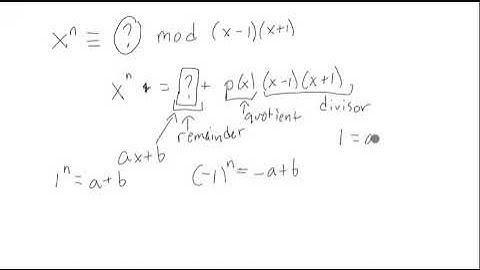 xⁿ ≡ ? mod (x-1)(x+1)
xⁿ = ? + p(x) (x-1)(x+1),
remainder quotient divisor
ax+b
1 = a
1ⁿ = a+b (-1)ⁿ = -a+b